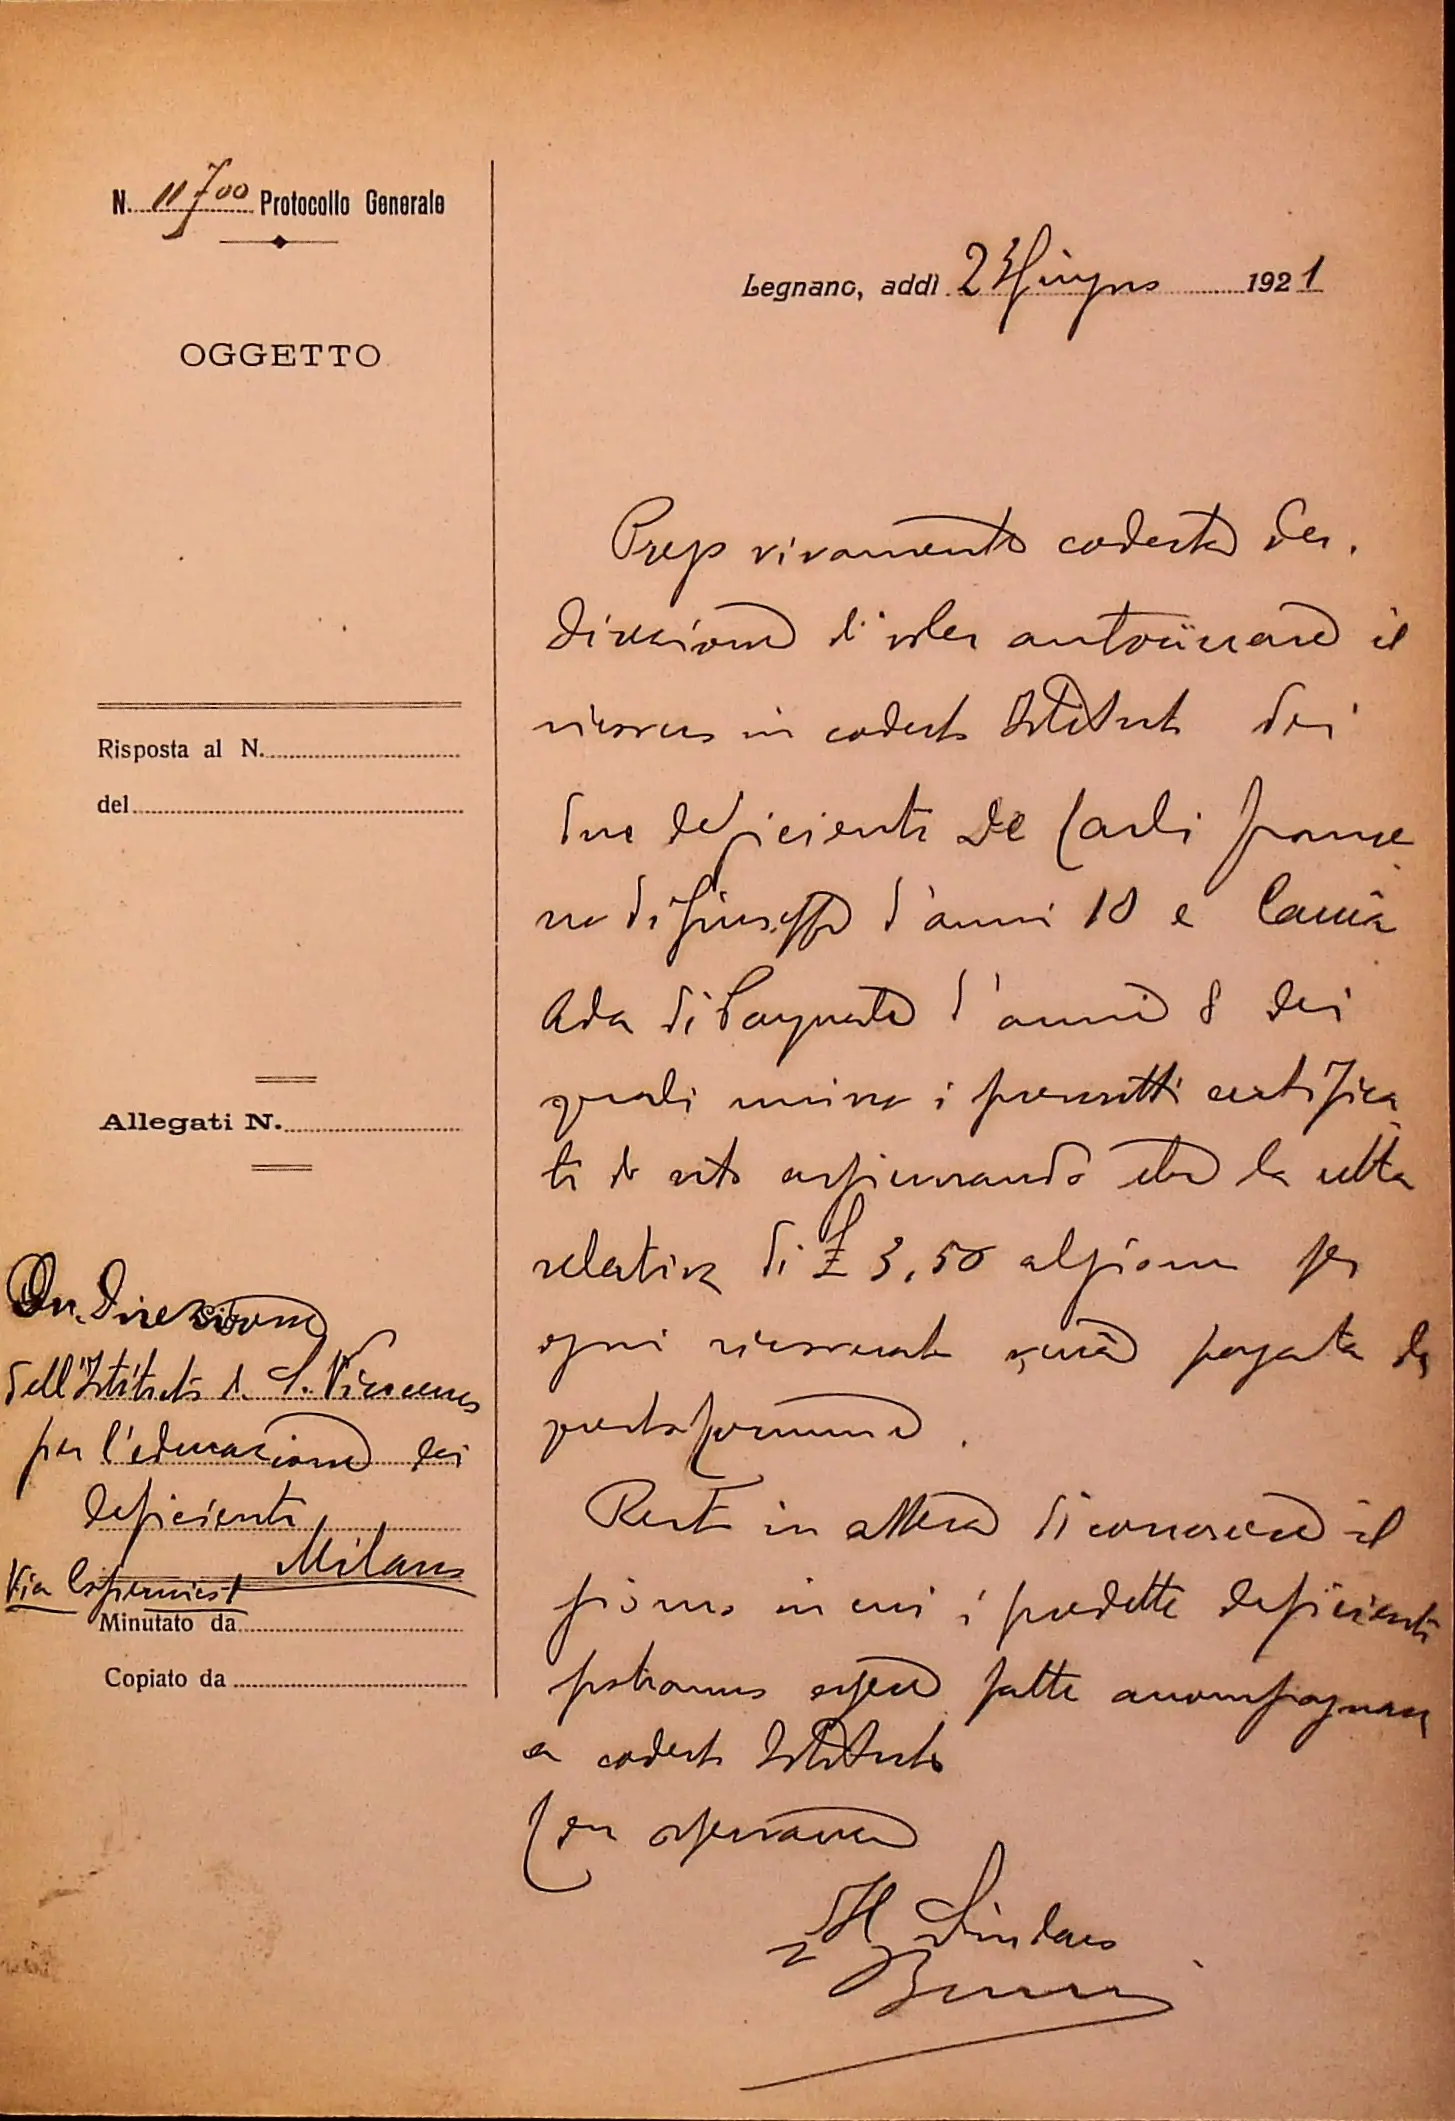 N. 11700 Protocollo Generale
OGGETTO
Risposta al N.
del
Allegati N.
On. Direzione
dell'Istituto d. S. Vincenzo
per l'educazione dei
deficienti
Milano
Via Copernico 1
Minutato da
Copiato da
Legnano, addì 23 Giugno 1921
Prego vivamente codesta
direzione di voler autorizzare il
ricovero in codesto Istituto dei
due deficienti De Carli France
di Giuseppe d'anni 10 e
Ada di d'anni 8 dei
quali unisco i prescritti certifica
ti di rito assicurando che la retta
relativa di £ 3,50 al giorno per
ogni ricoverato verrà pagata da
questo comune.
Resto in attesa di conoscere il
giorno in cui i predetti deficienti
potranno essere fatti accompagnare
a codesto Istituto
Con osservanza
Il Sindaco